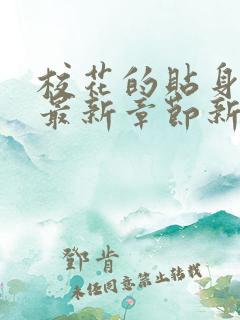 校花的貼身
最新章節新
鄧肯
未经同意禁止转载